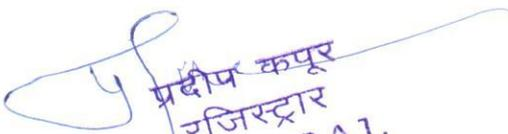 प्रदीप कपूर
रजिस्ट्रार